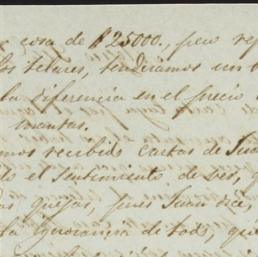 cosa de $25000., pero rep
los telares, tendriamos un
la diferencia en el precio
mantas.
mos recibido cartas de Jua
el sentimiento de ver, q
quejas, pues Juan dice,
ta ignorancia de todo, qu